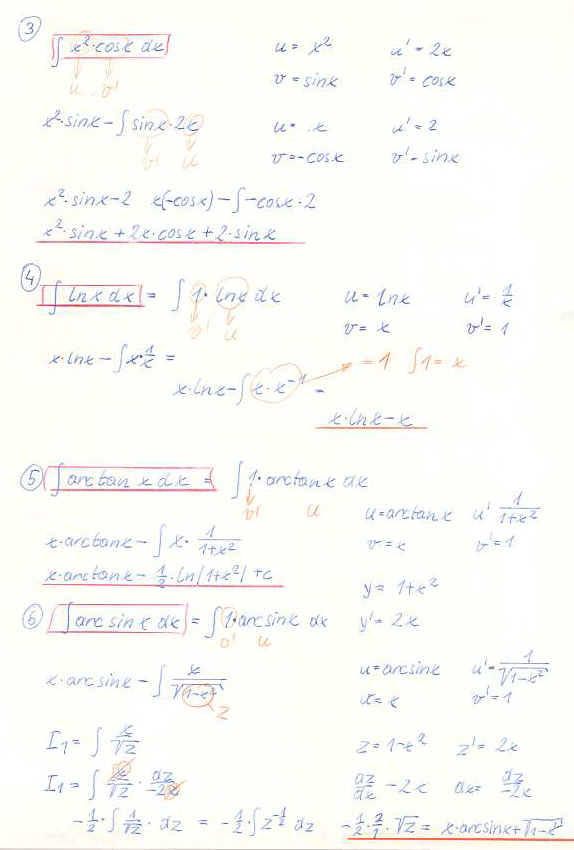 ③
∫ x²·cosx dx   u = x²   u' = 2x
u   v'   v = sinx   v' = cosx
x²·sinx – ∫ sinx·2x   u = x   u' = 2
v'   u   v = -cosx   v' = sinx
x²·sinx – 2   x(-cosx) – ∫ -cosx·2
x²·sinx + 2x·cosx + 2·sinx
④
∫ lnx dx = ∫ 1·lnx dx   u = lnx   u' = 1/x
v'   u   v = x   v' = 1
x·lnx – ∫ x·1/x =   = 1   ∫1 = x
x·lnx – ∫ x·x⁻¹ =
x·lnx – x
⑤ ∫ arctan x dx = ∫ 1·arctanx dx
v'   u   u = arctanx   u' 1/(1+x²)
x·arctanx – ∫ x· 1/(1+x²)   v = x   v' = 1
x·arctanx – 1/2·ln|1+x²| + c   y = 1+x²
⑥ ∫ arcsinx dx = ∫ 1·arcsinx dx   y' = 2x
v'   u
x·arcsinx – ∫ x/√(1-x²)   u = arcsinx   u' = 1/√(1-x²)
z   v = x   v' = 1
I₁ = ∫ x/√z   z = 1-x²   z' = 2x
I₁ = ∫ x/√z · dz/-2x   dz/dx – 2x   dx = dz/-2x
-1/2·∫ 1/√z · dz = -1/2·∫ z^-1/2 dz   -1/2·2/1·√z = x·arcsinx + √(1-x²)